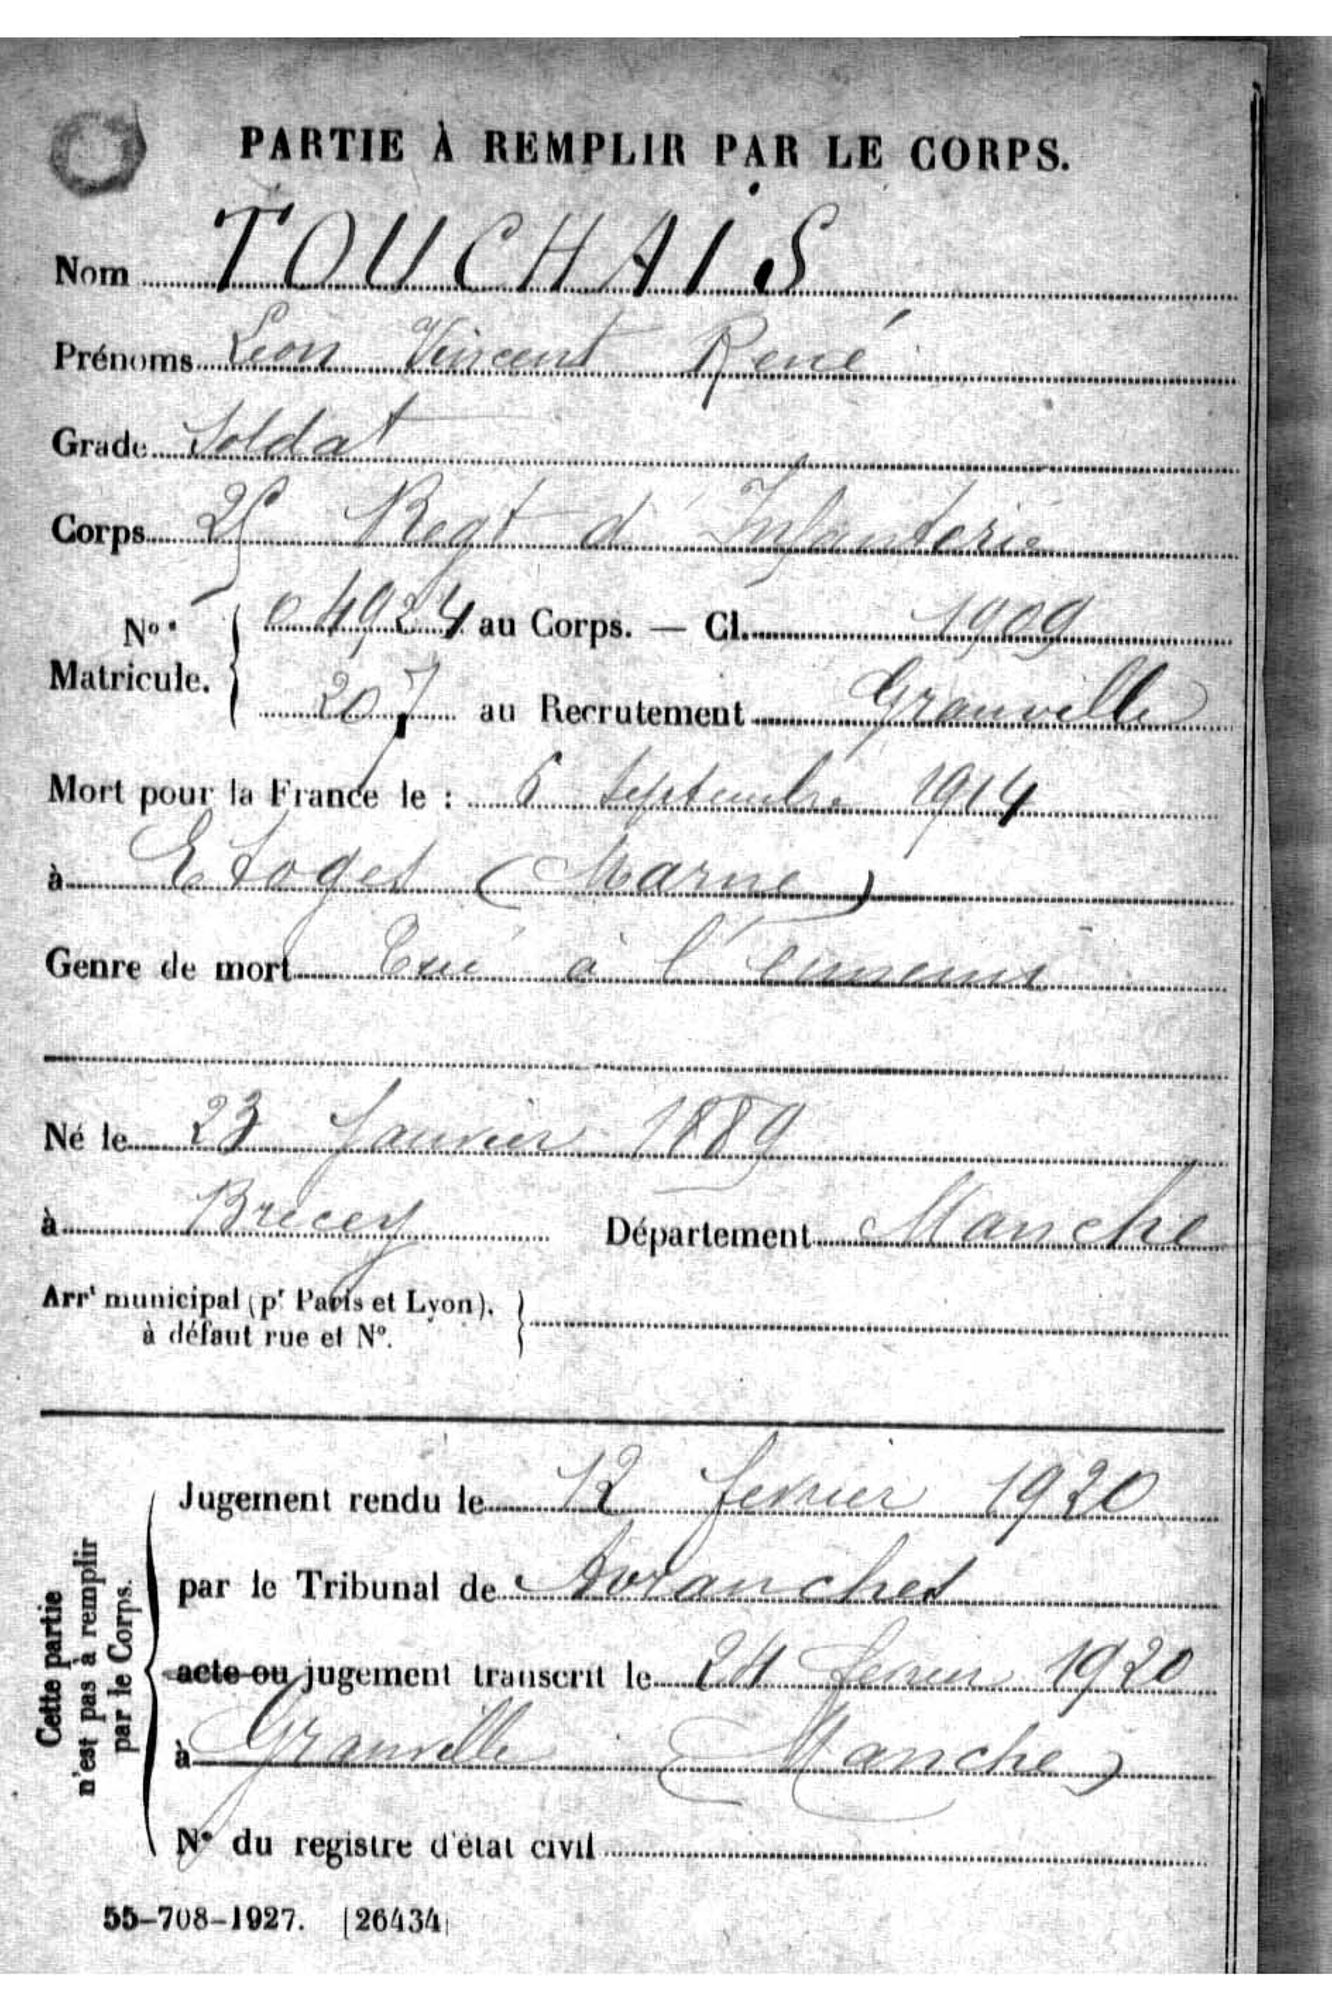 PARTIE À REMPLIR PAR LE CORPS.
Nom TOUCHAIS
Prénoms Léon Vincent René
Grade Soldat
Corps 2e Regt d'Infanterie
Nos Matricule.
04924 au Corps. — Cl. 1909
207 au Recrutement Granville
Mort pour la France le : septembre 1914
à Etoges (Marne)
Genre de mort Tué à l'ennemi
Né le 23 Janvier 1889
à Brecey Département Manche
Arrt municipal (pr Paris et Lyon),
à défaut rue et No.
Cette partie
n'est pas à remplir
par le Corps.
Jugement rendu le 12 fevrier 1920
par le Tribunal de Avranches
acte ou jugement transcrit le 24 fevrier 1920
à Granville (Manche)
No du registre d'état civil
55-708-1927. [26434]